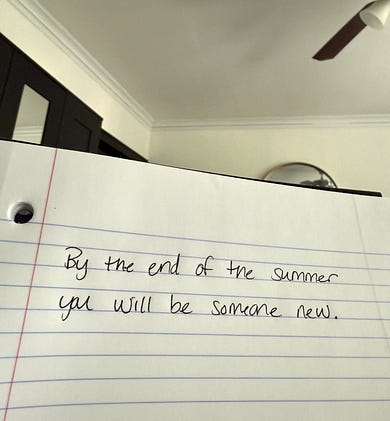 By the end of the summer
you will be someone new.